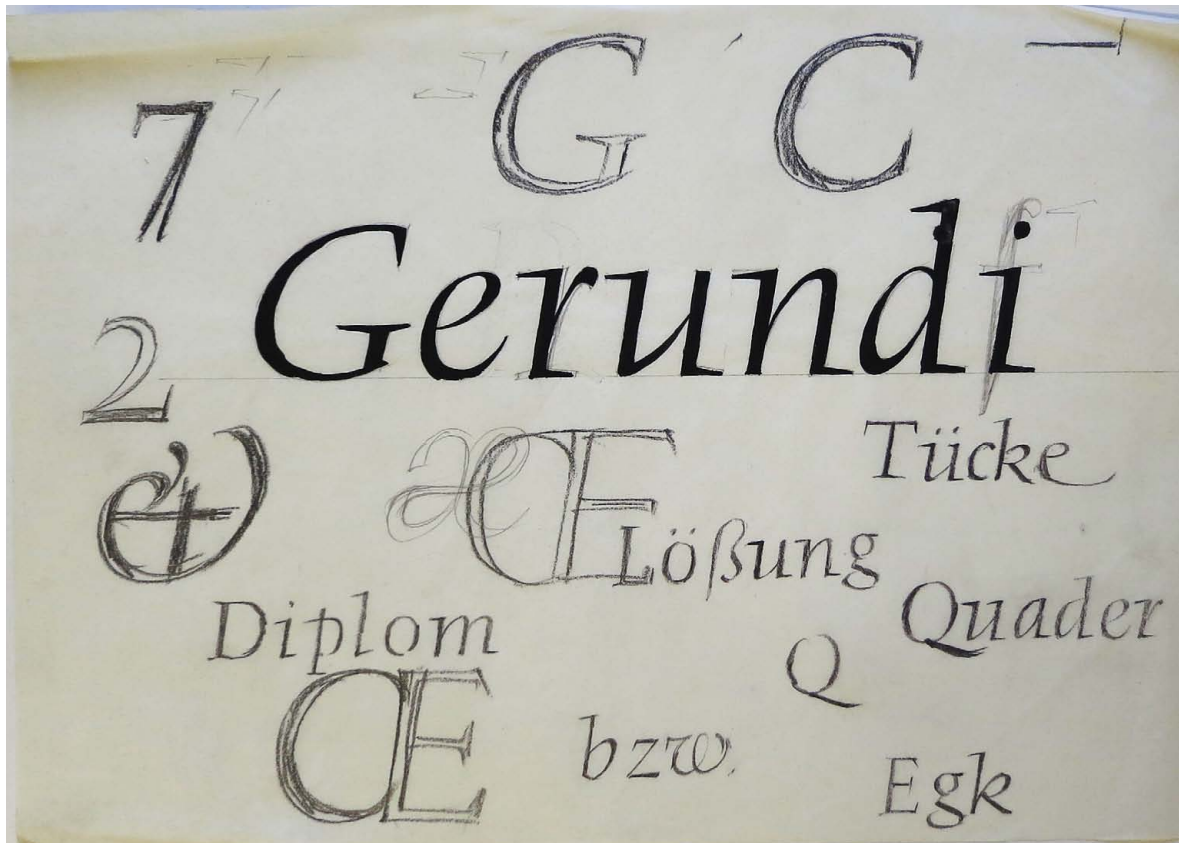 G C
7
Gerundi
2
& æ Œ Tücke
Lößung
Diplom Quader
Q
Œ bzw. Egk